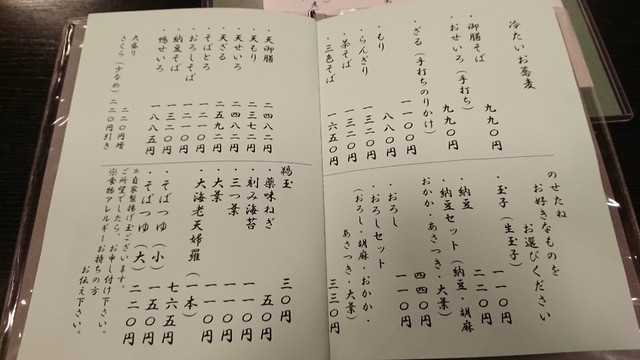 冷たいお蕎麦
・御膳そば 九九〇円
・おせいろ（手打ち） 九九〇円
・ざる（手打ちのりかけ） 一一〇〇円
・もり 八八〇円
・らんぎり 一三二〇円
・茶そば 一三二〇円
・三色そば 一六五〇円
・天御膳 二四八二円
・天もり 二三七二円
・天せいろ 二四八二円
・天ざる 二五九二円
・そばとろ 一二一〇円
・おろしそば 一二一〇円
・納豆そば 一三二〇円
・鴨せいろ 一八八五円
大盛り 二二〇円増
さくら（少なめ） 二二〇円引き
のせたね
お好きなものを
お選びください
・玉子（生玉子） 一一〇円
・納豆 二二〇円
・納豆セット（納豆・胡麻
おかか・あさつき・大葉） 四四〇円
・おろし 一一〇円
・おろしセット
（おろし・胡麻・おかか・
あさつき・大葉） 三三〇円
鶉玉 三〇円
・薬味ねぎ 五〇円
・刻み海苔 一一〇円
・三つ葉 一一〇円
・大葉 一一〇円
・大海老天婦羅（一本） 七六五円
・そばつゆ（小） 一五〇円
・そばつゆ（大） 二二〇円
※自家製揚げ玉ございます。
ご所望でしたら、お申し付け下さい。
※食物アレルギーお持ちの方
お伝え下さい。